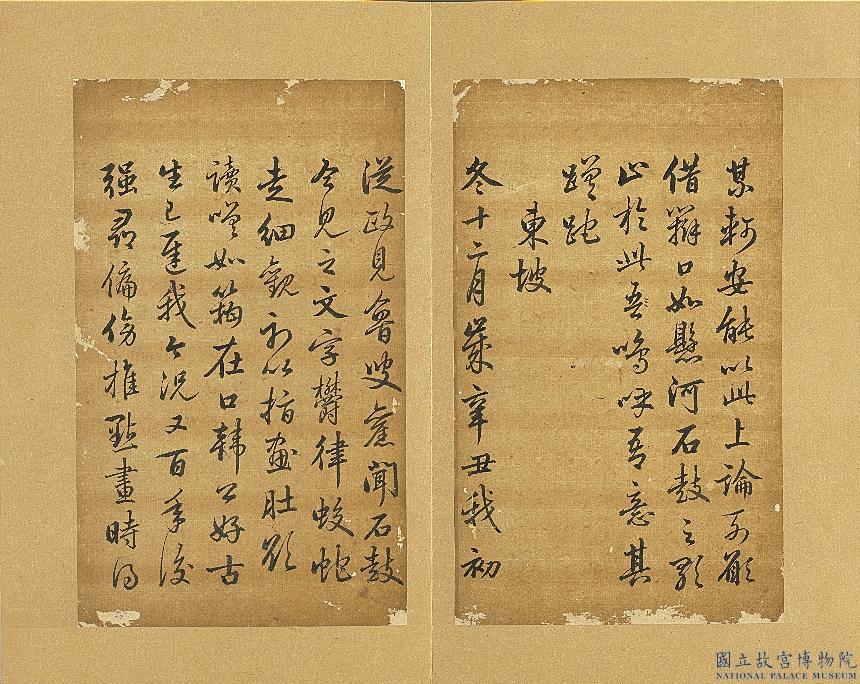 某軻安能以此上論列願
借辯口如懸河石鼓之歌
止於此吾嗚呼吾意其
蹭跎
東坡
冬十二月歲辛丑我初
從政見魯叟舊聞石鼓
今見之文字鬱律蛟蛇
走細觀初以指畫肚欲
讀嗟如箝在口韓公好古
生已遲我今況又百年後
强尋偏傍推點畫時得
國立故宮博物院
NATIONAL PALACE MUSEUM